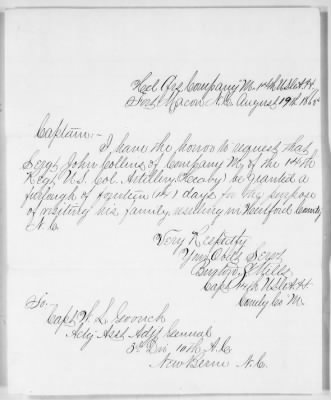 Hed Qrs Company M. 14th U.S.C.A.H.
Fort Macon N.C. August 19th 1865
Captain:-
I have the honor to request that
Sergt John Collins of Company M, of the 14th
Regt U.S. Col. Artillery (Heavy) be granted a
furlough of fourteen (14) days for the purpose
of visiting his family residing in Hertford County
N.C.
Very Respectfly
Your Obdt Servt
Mills
Capt 14th U.S.C.A.H.
Comdg Co M.
To.
Capt. W. L.
Actg Asst Adjt General
3rd Div 10th A.C.
New Berne N.C.